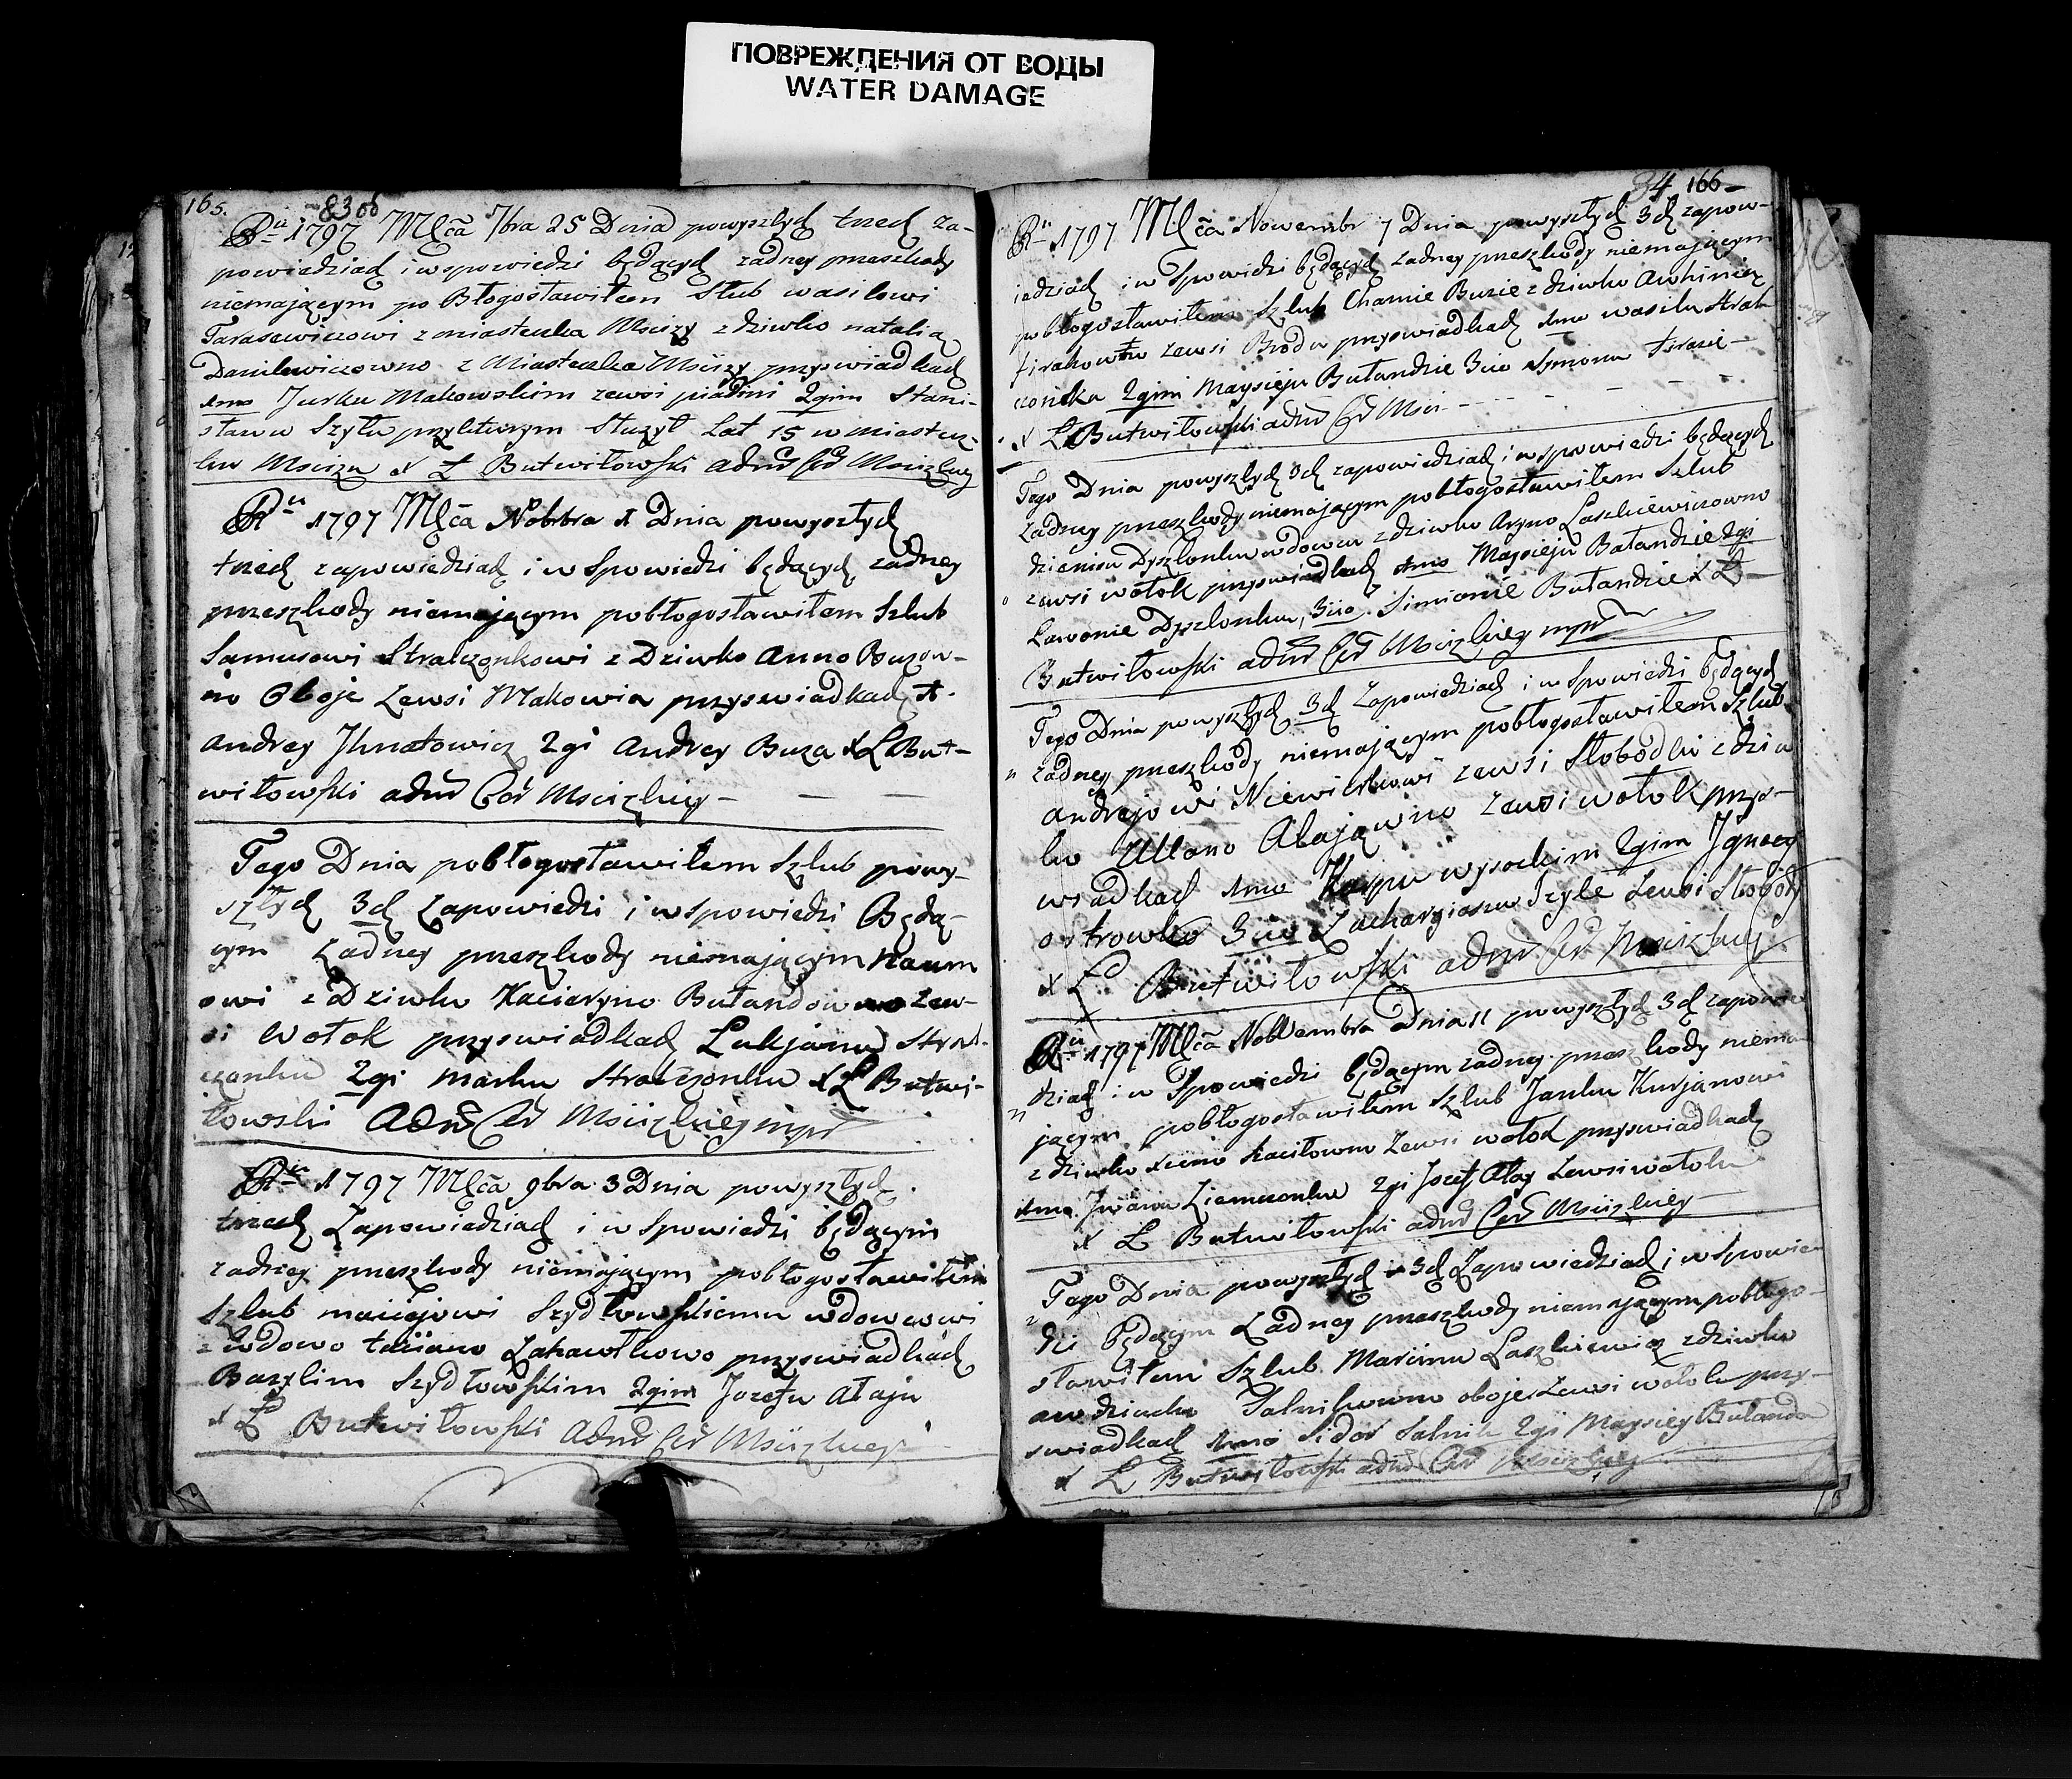 ПОВРЕЖДЕНИЯ ОТ ВОДЫ
WATER DAMAGE
165. 83 об
Ru 1797 Mcã 7bra 25 Dnia powyszłych trzech za-
powiedziach i wspowiedzi będących zadney przeszkody
niemającym po Błogosławiłem Slub wasilowi
Tarasewiczowi z miasteczka Mscizy z dziwko natalią
Danilewiczowno z Miasteczka Mscizy przyswiadkach
1mo Jurku Makowskim zewsi 2gim Stani-
sławu Szyłu przyktorym Słuzył Lat 15 w miastecz-
ku Mscizu X L Butwiłowski admr Cer Mscizkiey
Ru 1797 Mcã Nobrbra 1 Dnia powyszłych
trzech zapowiedziach i w Spowiedzi będących zadney
przeszkody niemającym pobłogosławiłem Szlub
Samusowi Stralczonkowi z Dziwko Anno Buzow-
no Oboje Zewsi Makowia przyswiadkach
Andrey Jhnatowicz 2gi Andrey Buza X L But-
wiłowski admr Cer Mscizkiey —
Tego Dnia pobłogosławiłem Szlub powy-
szłych 3ch Zapowiedzi i wspowiedzi Będą-
cym Zadney przeszkody niemającym Naum
owi z Dziwko Kacieryno Butandowno zew-
si Wołok przyswiadkach Lukjanu Stral-
czonku 2gi marku Stralczonku X L Butwi-
łowski Admr Cer Mscizkiey mpr
Ru 1797 Mcã 9bra 3 Dnia powyszłych
trzech Zapowiedziach i w Spowiedzi będącym
zadney przeszkody niemającym pobłogosławiłem
Szlub maciejowi Szydłowskiemu wdowcowi
z Wdowo taciano Zakawkowo przyswiadkach
Bazylim Szydłowskim 2gim Jozefu ataju
X L Butwiłowski Admr Cer Mscizkiey
34 166
Ru 1797 Mcã Nowembr 7 Dnia powyszłych 3ch zapow-
iedziach i w Spowiedzi będących zadney przeszkody niemającym
pobłogosławiłem Szlub Chamie Buzie z dziwko
zewsi Brodu przyswiadkach 1mo wasilu Stral-
czonku 2gim Maysieju Butandzie 3cio Symonu
X L Butwiłowski admr Cer Msci
Tego Dnia powyszłych 3ch zapowiedziach i w spowiedzi będących
Zadney przeszkody niemającym pobłogosławiłem Szlub
Dyszlonku wdowcu z dziwko Laszkiewiczowno
zewsi wołok przyswiadkach 1mo Maysieju Batandzie 2gi
Lawonie Dyszlonku, 3cio Simionie Butandzie X L
Butwiłowski admr Cer Mscizkiey mpr
Tego Dnia powyszłych 3ch Zapowiedziach i w Spowiedzi będących
zadney przeszkody niemającym pobłogosławiłem Szlub
Andrejowi zewsi Słobodki z dziw
ko Ullano Atajowno zewsi wołok przy-
wiadkach 1mo wysockim 2gim Jgnacy
ostrowko 3cio Zacharyiaszu Szyłe Zewsi Słobody
X L Butwiłowski admr Cer Mscizkiey
Ru 1797 Mcã Nowembra Dnia 11 powyszłych 3ch zapowie
dziach i w Spowiedzi będącym zadney przeszkody niema
jącym pobłogosławiłem Szlub Janku Kurjanowi
z dziwko Zewsi wołok przyswiadkach
1mo Jwanu Ziemczonku 2gi Jozef Atay Zewsi wołoku
X L Butwiłowski admr Cer Mscizkiey
Tego Dnia powyszłych 3ch Zapowiedziach i w Spowie
dzi będącym Zadney przeszkody niemającym pobłogo-
sławiłem Szlub Marcinu Laszkiewicz z dziwko
Salnikowno oboje Zewsi wołoku przy-
swiadkach 1mo Sidor Salnik 2gi Maysiey Butanda
X L Butwiłowski admr Cer Mscizkiey